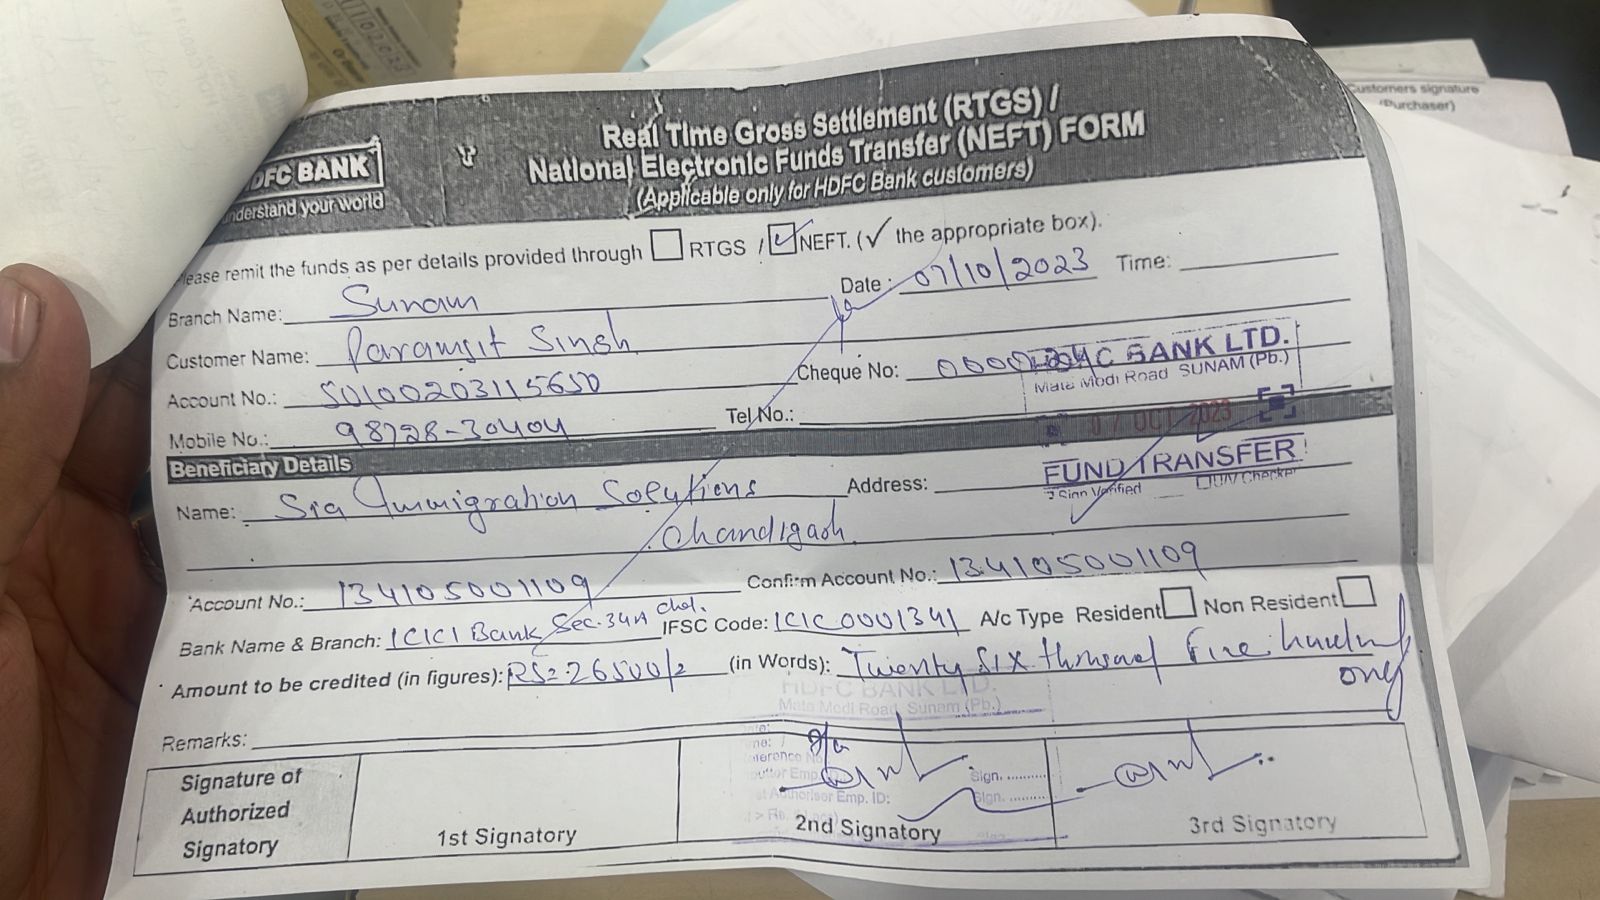 Customers signature
(Purchaser)
DFC BANK
understand your world
Real Time Gross Settlement (RTGS) /
National Electronic Funds Transfer (NEFT) FORM
(Applicable only for HDFC Bank customers)
Please remit the funds as per details provided through RTGS / NEFT. (✓ the appropriate box).
Branch Name: Sunam Date: 07/10/2023 Time:
Customer Name: Paramjit Singh
Account No.: 50100203115650 Cheque No:
BANK LTD.
Mata Modi Road SUNAM (Pb.)
Mobile No.: 98728-30404 Tel No.:
07 OCT 2023
Beneficiary Details
FUND TRANSFER
Sign Verified UV Checker
Name: Sia Immigration Solutions Address:
Chandigarh
Account No.: 134105001109 Confirm Account No.: 134105001109
Bank Name & Branch: ICICI Bank Sec. 34A Chd. IFSC Code: ICIC0001341 A/c Type Resident Non Resident
Amount to be credited (in figures): Rs= 26500/= (in Words): Twenty Six thousand five hundred
only
HDFC BANK LTD.
Mata Modi Road, Sunam (Pb.)
Remarks:
Signature of
Authorized
Signatory
Sign. ..........
Emp. ID:
Sign. ..........
1st Signatory 2nd Signatory 3rd Signatory